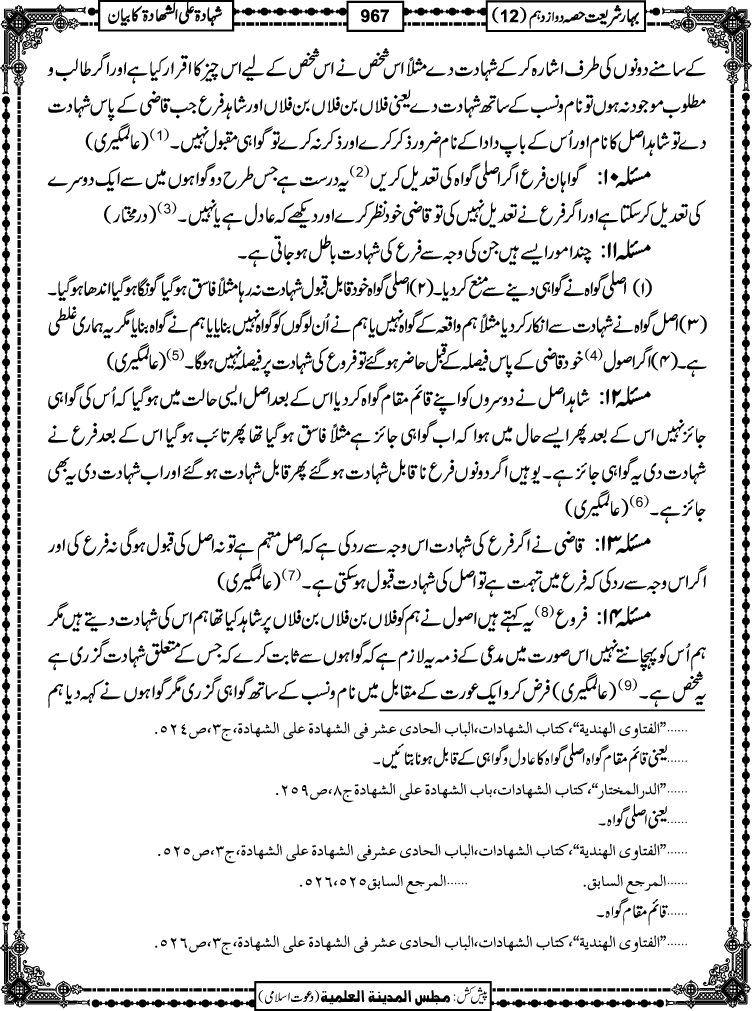 بہار شریعت حصہ دوازدہم (12)
967
شہادۃ علی الشہادۃ کا بیان
کے سامنے دونوں کی طرف اشارہ کرکے شہادت دے مثلاً اس شخص نے اس شخص کے لیے اس چیز کا اقرار کیا ہے اور اگر طالب و
مطلوب موجود نہ ہوں تو نام و نسب کے ساتھ شہادت دے یعنی فلاں بن فلاں بن فلاں اور شاہد فرع جب قاضی کے پاس شہادت
دے تو شاہد اصل کا نام اور اُس کے باپ دادا کے نام ضرور ذکر کرے اور ذکر نہ کرے تو گواہی مقبول نہیں۔(1) (عالمگیری)
مسئلہ ۱۰: گواہان فرع اگر اصلی گواہ کی تعدیل کریں(2) یہ درست ہے جس طرح دو گواہوں میں سے ایک دوسرے
کی تعدیل کرسکتا ہے اور اگر فرع نے تعدیل نہیں کی تو قاضی خود نظر کرے اور دیکھے کہ عادل ہے یا نہیں۔(3) (درمختار)
مسئلہ ۱۱: چند امور ایسے ہیں جن کی وجہ سے فرع کی شہادت باطل ہو جاتی ہے۔
(۱) اصلی گواہ نے گواہی دینے سے منع کر دیا۔ (۲) اصلی گواہ خود قابل قبول شہادت نہ رہا مثلاً فاسق ہوگیا گونگا ہوگیا اندھا ہوگیا۔
(۳) اصل گواہ نے شہادت سے انکار کر دیا مثلاً ہم واقعہ کے گواہ نہیں یا ہم نے اُن لوگوں کو گواہ نہیں بنایا یا ہم نے گواہ بنایا مگر یہ ہماری غلطی
ہے۔ (۴) اگر اصول(4) خود قاضی کے پاس فیصلہ کے قبل حاضر ہوگئے تو فروع کی شہادت پر فیصلہ نہیں ہوگا۔(5) (عالمگیری)
مسئلہ ۱۲: شاہد اصل نے دوسروں کو اپنے قائم مقام گواہ کر دیا اس کے بعد اصل ایسی حالت میں ہوگیا کہ اُس کی گواہی
جائز نہیں اس کے بعد پھر ایسے حال میں ہوا کہ اب گواہی جائز ہے مثلاً فاسق ہوگیا تھا پھر تائب ہوگیا اس کے بعد فرع نے
شہادت دی یہ گواہی جائز ہے۔ یوہیں اگر دونوں فرع نا قابل شہادت ہوگئے پھر قابل شہادت ہوگئے اور اب شہادت دی یہ بھی
جائز ہے۔(6) (عالمگیری)
مسئلہ ۱۳: قاضی نے اگر فرع کی شہادت اس وجہ سے رد کی ہے کہ اصل متہم ہے تو نہ اصل کی قبول ہوگی نہ فرع کی اور
اگر اس وجہ سے رد کی کہ فرع میں تہمت ہے تو اصل کی شہادت قبول ہوسکتی ہے۔(7) (عالمگیری)
مسئلہ ۱۴: فروع(8) یہ کہتے ہیں اصول نے ہم کو فلاں بن فلاں بن فلاں پر شاہد کیا تھا ہم اس کی شہادت دیتے ہیں مگر
ہم اُس کو پہچانتے نہیں اس صورت میں مدعی کے ذمہ یہ لازم ہے کہ گواہوں سے ثابت کرے کہ جس کے متعلق شہادت گزری ہے
یہ شخص ہے۔(9) (عالمگیری) فرض کرو ایک عورت کے مقابل میں نام و نسب کے ساتھ گواہی گزری مگر گواہوں نے کہہ دیا ہم
......"الفتاوی الھندیة"، کتاب الشھادات، الباب الحادی عشر فی الشھادة علی الشھادة، ج۳، ص۵۲٤.
......یعنی قائم مقام گواہ اصلی گواہ کا عادل و گواہی کے قابل ہونا بتائیں۔
......"الدرالمختار"، کتاب الشھادات، باب الشھادة علی الشھادة ج۸، ص۲۵۹.
......یعنی اصلی گواہ۔
......"الفتاوی الھندیة"، کتاب الشھادات، الباب الحادی عشر فی الشھادة علی الشھادة، ج۳، ص۵۲۵.
......المرجع السابق. ......المرجع السابق ۵۲۵،۵۲٦.
......قائم مقام گواہ۔
......"الفتاوی الھندیة"، کتاب الشھادات، الباب الحادی عشر فی الشھادة علی الشھادة، ج۳، ص۵۲٦.
پیش کش: مجلس المدینة العلمیة (دعوت اسلامی)